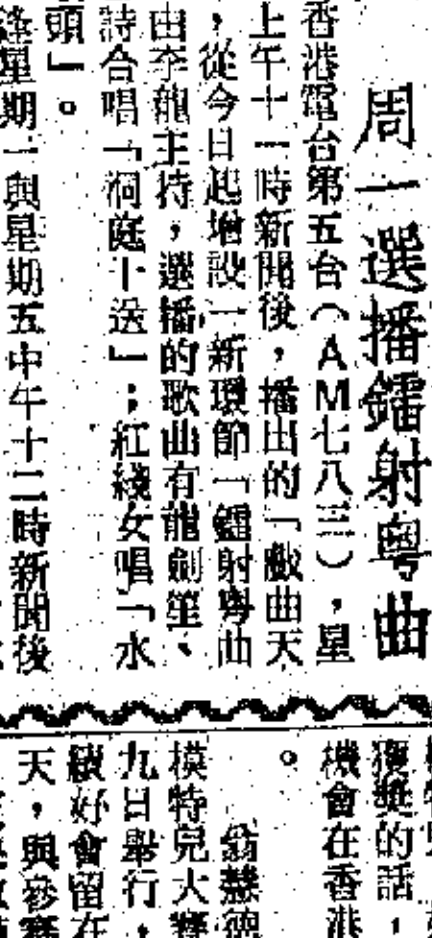 周一選播鐳射粵曲
香港電台第五台（AM七八三），星
上午十一時新聞後，播出的「戲曲天
，從今日起增設一新環節「鐳射粵曲
由李龍主持，選播的歌曲有龍劍笙、
詩合唱「洞庭十送」；紅綫女唱「水
頭」。
逢星期一與星期五中午十二時新聞後
獲獎的話，
機會在香港
。
翁慧德
模特兒大賽
九日舉行，
好會留在
天，與參賽